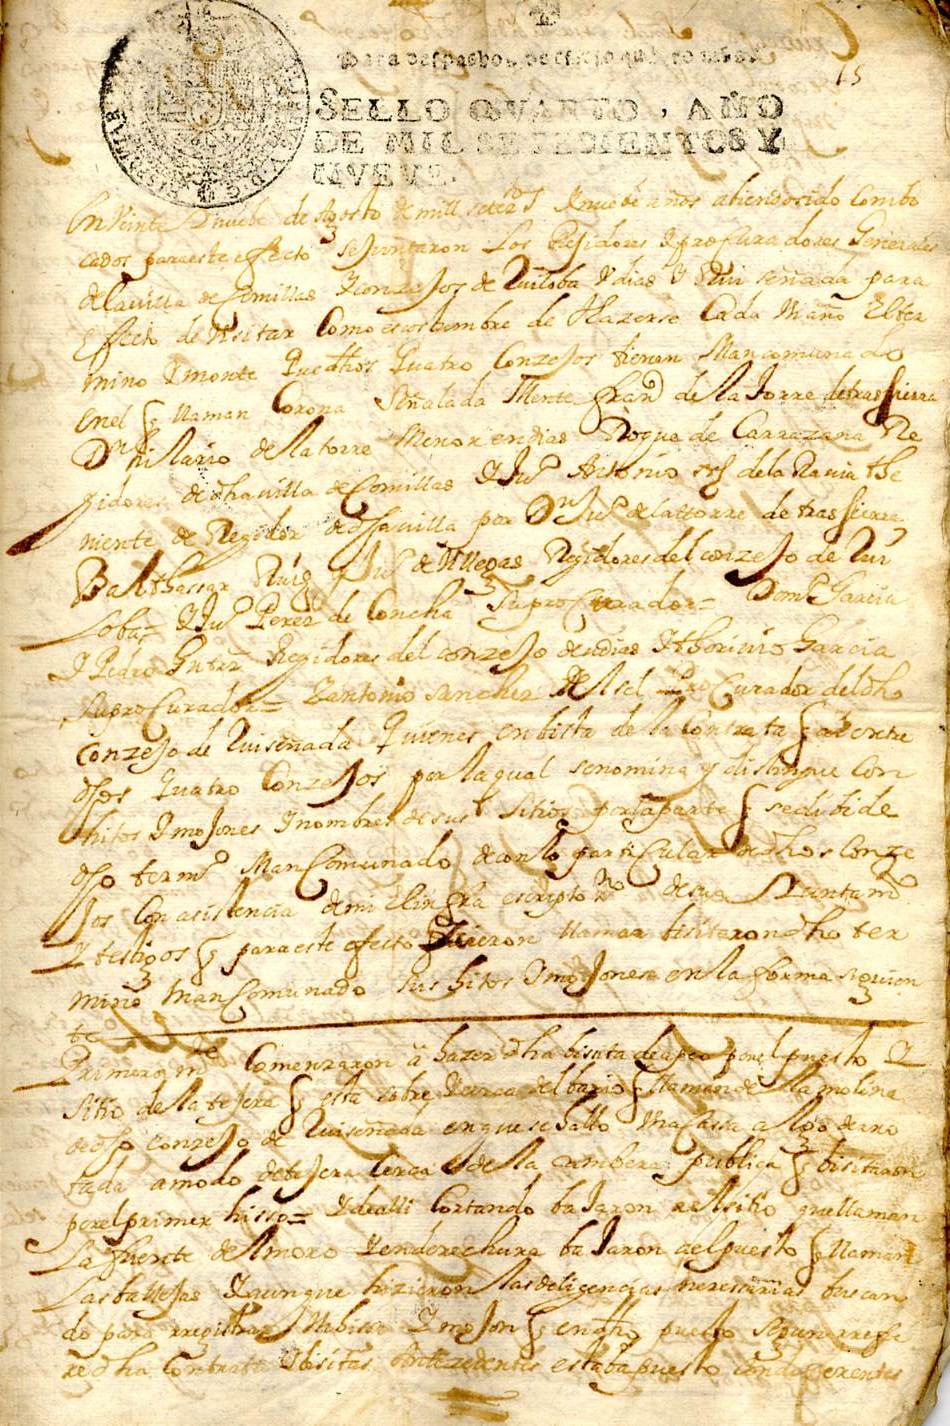 15
Para despachos de oficio quatro mrs.
SELLO QVARTO, AÑO
DE MIL SETECIENTOS Y
NVEVE.
En Veinte Y nuebe de Agosto de mill setezos Y nuebe años abiendosido combo
cados para este effecto sejuntaron Los Rejidores Y procuradores Generales
de la villa de Comillas Y conzejos de Ruiloba Vdias Y Ruiseñada para
Effecto de Visitar Como es costumbre de Hazerse Cada Un año El ter
mino Y monte Que dhos Quatro Conzejos tienen Mancomunado
En el q llaman Corona Señalada Mente Franco de la Torre de trassierra
Dn hilario de la torre Menor en dias Roque de Carrazana Re
gidores de dha villa de Comillas Y Juo Antonio de la Ravia the
niente de Regidor de dha villa por Dn Juo de la torre de tras sierra
Balthassar Ruiz Y Juo de Villegas Regidores del conzejo de Rui
Loba = Y Juo Perez de Concha Su procurador = Domo Garcia
Y Pedro Gutrrz Regidores del conzejo de udias Y thorivio Garcia
Su procurador = Y antonio Sanchez Procurador del dho
Conzejo de Ruiseñada Quienes en bista de la Contrata q ai entre
dhos Quatro Conzejos por la qual senomina y distingue Con
hitos Y mojones Y nombres de sus Sitios por la parte q se dibide
dho termo Mancomunado de con lo particular de dhos Conze
jos Con asistencia de mi El infra escripto de su Aiuntamo
Y testigos q para este efecto hicieron llamar bisitaron dho ter
mino Mancomunado Sus hitos Y mojones en la forma siguien
te
Primeramte Comenzaron a hazer dha bisita de apeo por el puesto Y
Sitio de la tejera q esta sobre Y cerca del bario q llaman de la molina
de dho conzejo de Ruiseñada en que se hallo Una
tada a modo de tejera cerca de la cambera publica q bisitaron
por el primer hisso = Y de alli Cortando bajaron a el sitio que llaman
La fuente del moro Y en derechura bajaron a el puesto q llaman
Las ballejas Y aunque hizieron las deligencias necesarias buscan
do para registrar Un hisso Y mojon q en dho puesto segun se refie
re dha Contrata Y bisitas Antezedentes estaba puesto